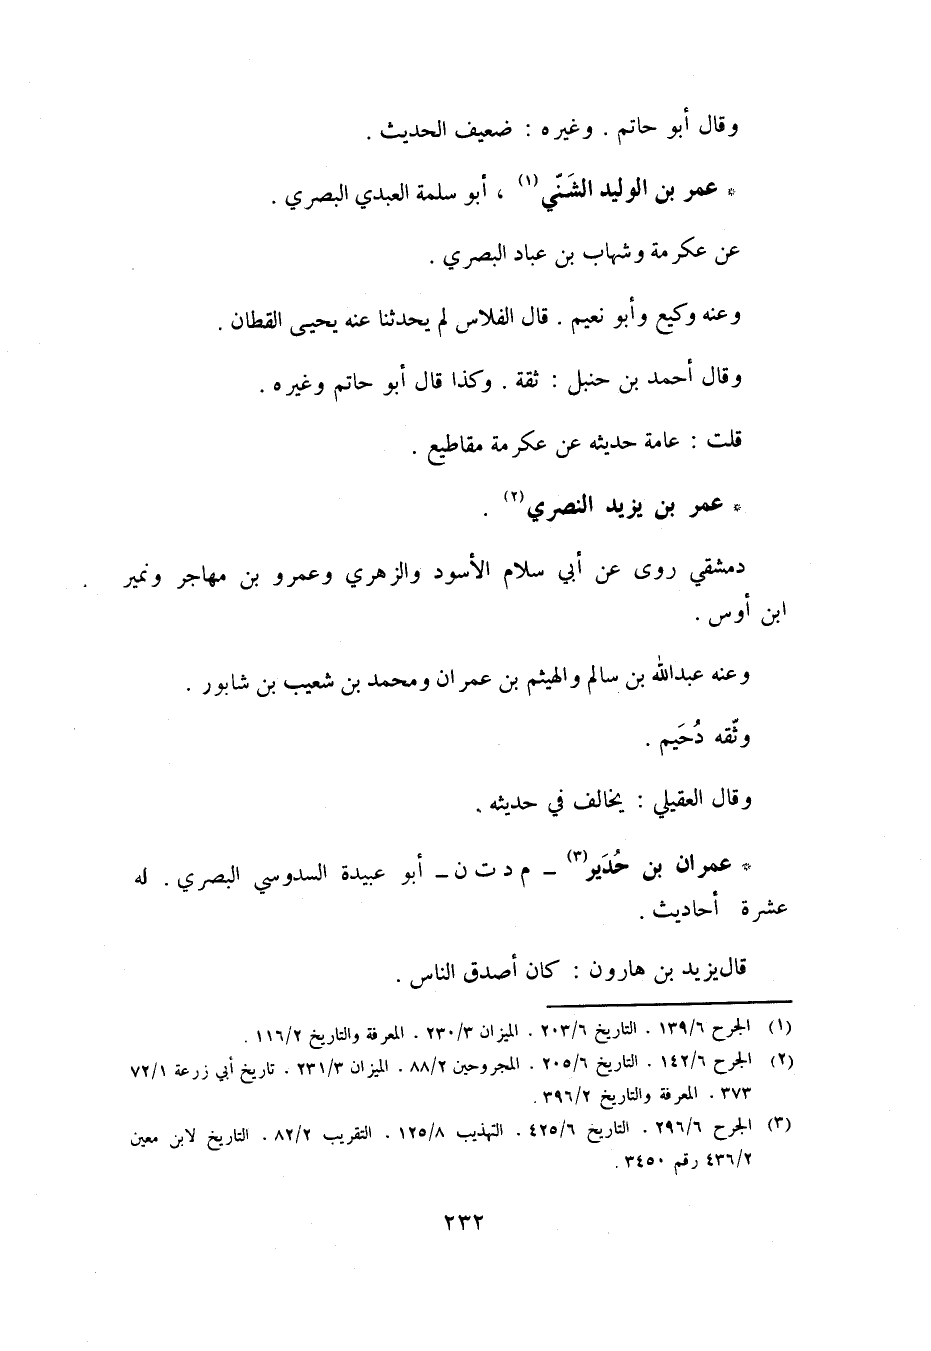 وقال أبو حاتم . وغيره : ضعيف الحديث .
* عمر بن الوليد الشَنّي(١) ، أبو سلمة العبدي البصري .
عن عكرمة وشهاب بن عباد البصري .
وعنه وكيع وأبو نعيم . قال الفلاس لم يحدثنا عنه يحيى القطان .
وقال أحمد بن حنبل : ثقة . وكذا قال أبو حاتم وغيره .
قلت : عامة حديثه عن عكرمة مقاطيع .
* عمر بن يزيد النصري(٢) .
دمشقي روى عن أبي سلام الأسود والزهري وعمرو بن مهاجر ونمير
ابن أوس .
وعنه عبدالله بن سالم والهيثم بن عمران ومحمد بن شعيب بن شابور .
وثّقه دُحَيم .
وقال العقيلي : يخالف في حديثه .
* عمران بن حُدَير(٣) ـ م د ت ن ـ أبو عبيدة السدوسي البصري . له
عشرة أحاديث .
قال يزيد بن هارون : كان أصدق الناس .
(١) الجرح ١٣٩/٦ . التاريخ ٢٠٣/٦ . الميزان ٢٣٠/٣ . المعرفة والتاريخ ١١٦/٢ .
(٢) الجرح ١٤٢/٦ . التاريخ ٢٠٥/٦ . المجروحين ٨٨/٢ . الميزان ٢٣١/٣ . تاريخ أبي زرعة ٧٢/١
٣٧٣ . المعرفة والتاريخ ٣٩٦/٢ .
(٣) الجرح ٢٩٦/٦ . التاريخ ٤٢٥/٦ . التهذيب ١٢٥/٨ . التقريب ٨٢/٢ . التاريخ لابن معين
٤٣٦/٢ رقم ٣٤٥٠ .
٢٣٢